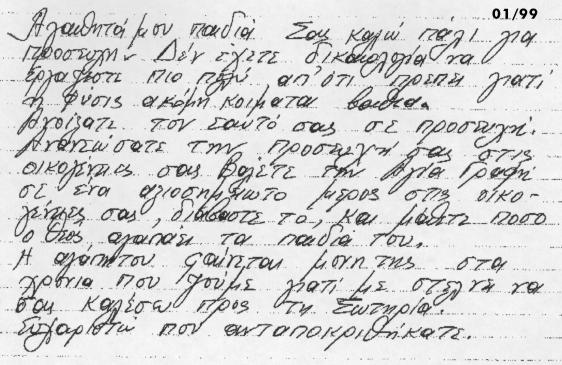 01/99
Αγαπητά μου παιδιά Σας καλώ πάλι για
προσευχή. Δέν έχετε δικαιολογία να
εργάζεστε πιο πολύ απ' ότι πρέπει γιατί
η φύσις ακόμη κοιμάται βαθιά.
Ανοίξατε τον εαυτό σας σε προσευχή.
Ανανεώσατε την προσευχή σας στις
οικογένειες σας βάλετε την Αγία Γραφή
σε ένα αξιοσημείωτο μέρος στις οικο-
γένειες σας, διαβάστε το, και μάθετε πόσο
ο Θεός, αγαπάει τα παιδιά του.
Η αγάπη του φαίνεται μόνη της στα
χρόνια που ζούμε γιατί με στέλνει να
σας καλέσω προς τη Σωτηρία.
Ευχαριστώ που ανταποκριθήκατε.